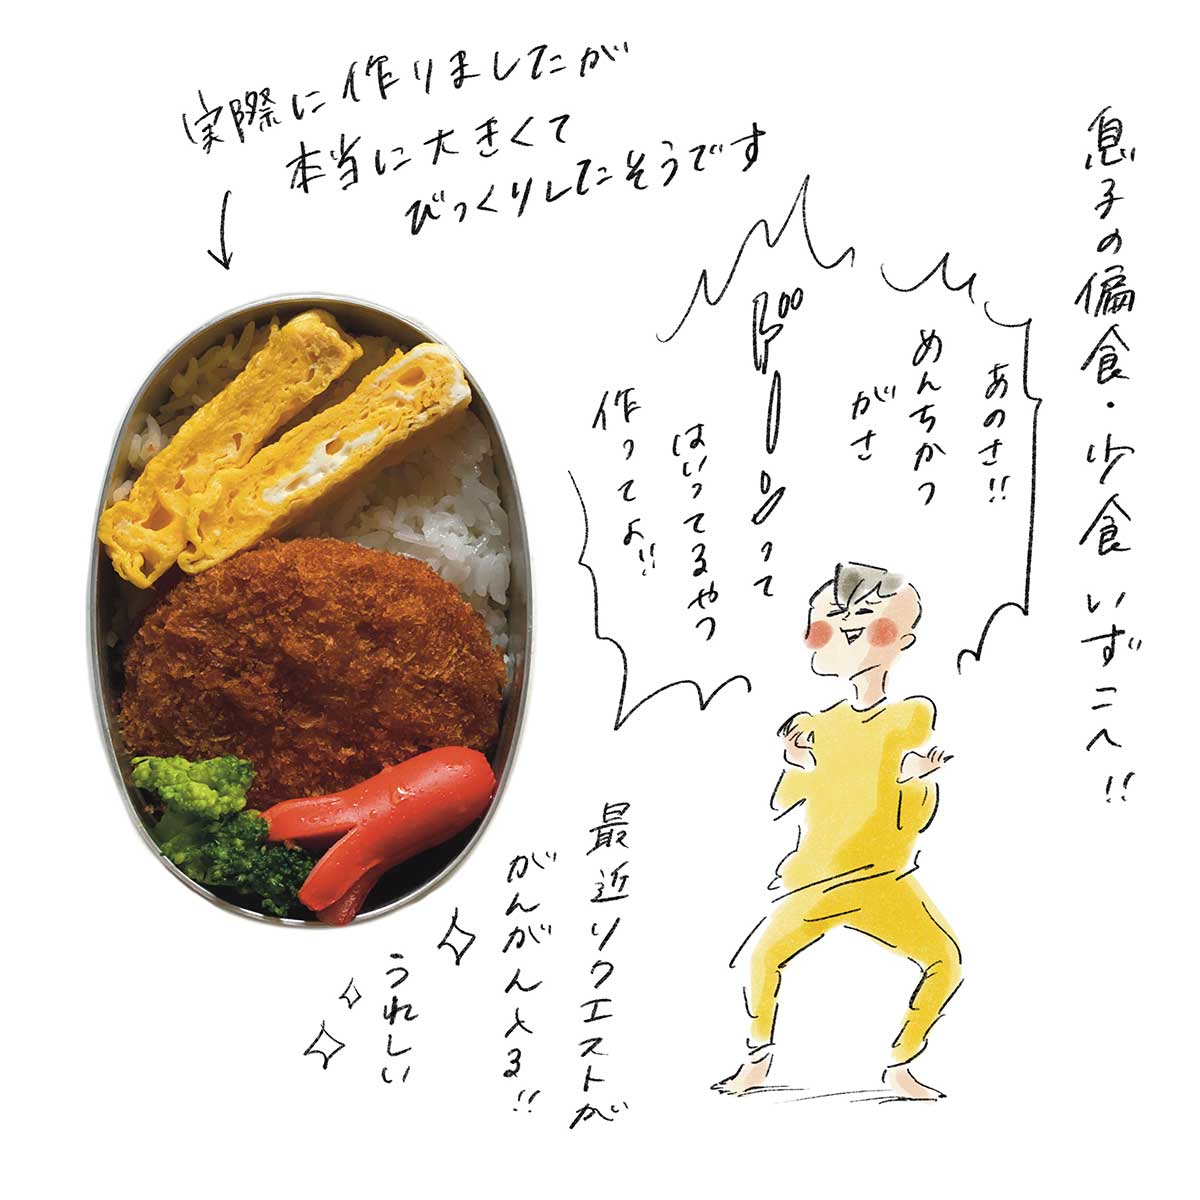 息子の偏食・少食 いずこへ!!
あのさ!!
めんちかつ
がさ
ドーンって
はいってるやつ
作ってよ!!
実際に作りましたが
本当に大きくて
びっくりしたそうです
最近リクエストが
がんがん入る!!
うれしい